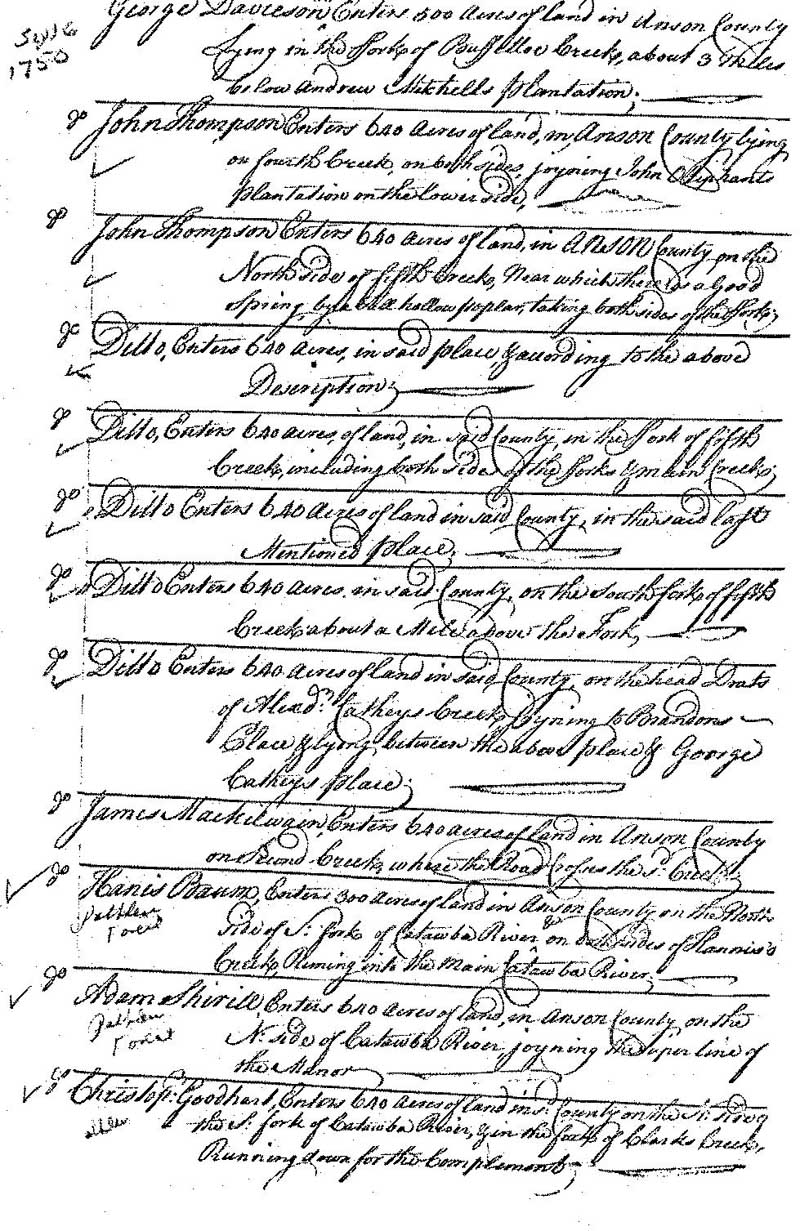 George Davieson Enters 500 Acres of land in Anson County
Sept 6
1750
lying in the forks of Buffelloe Creek, about 3 Miles
below Andrew Mitchells plantation;
do John Thompson Enters 640 Acres of land, in, Anson County lying
on fourth Creek, on both sides, joyning John Oliphants
Plantation on the lower side,
do John Thompson Enters 640 acres of land, in ANSON County, on the
North side of fifth Creek, Near which there is a Good
Spring, by a hollow poplar, taking both sides of the forks;
do Ditto, Enters 640 acres, in said place, & acording to the above
Description;
do Ditto, Enters 640 acres, of land, in said County, in the fork of fifth
Creek, including both sides of the forks & main Creek;
do Ditto Enters 640 Acres of land in said County, in the said last
Mentioned place,
do Ditto Enters 640 acres. in said County, on the South fork of fifth
Creek about a Mile above the Fork,
do Ditto Enters 640 acres of land in said County, on the head Drats
of Alexdr. Catheys Creek, Joyning to Brandons
Place & lying between the above place & George
Catheys place;
do James Mackilwain Enters 640 acres of land in Anson County
on Second Creek, where the Road Croses the sd. Creek;
do Hanis Baum, Enters 300 Acres of land in Anson County on the North
side of So. fork of Catawba River & on both sides of Hannis's
Creek, Runing into the Main Catawba River,
do Adam Shirill, Enters 640 acres of land, in Anson County, on the
No. side of Catawba River, joyning the uper line of
the Manor
do Christopr. Goodhart, Enters 640 Acres of land in sd. County on the So. side of
the So. fork of Catawba River, & in the fork of Clarks Creek,
Running down for the Complement;